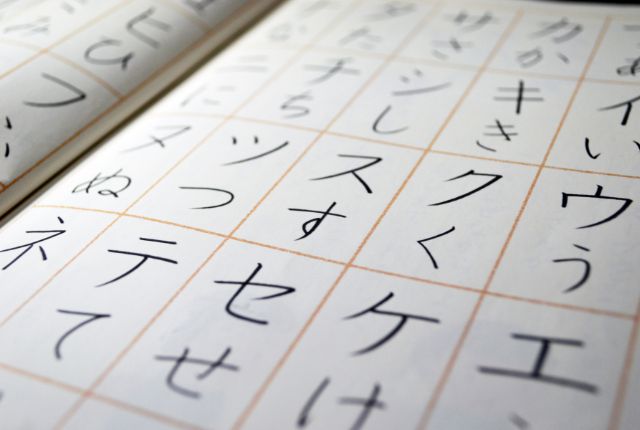 あ イ い ウ う エ
カ か キ き ク く ケ け
サ さ シ し ス す セ せ
タ た チ ち ツ つ テ て
ニ に ヌ ぬ ネ
ヒ ひ フ